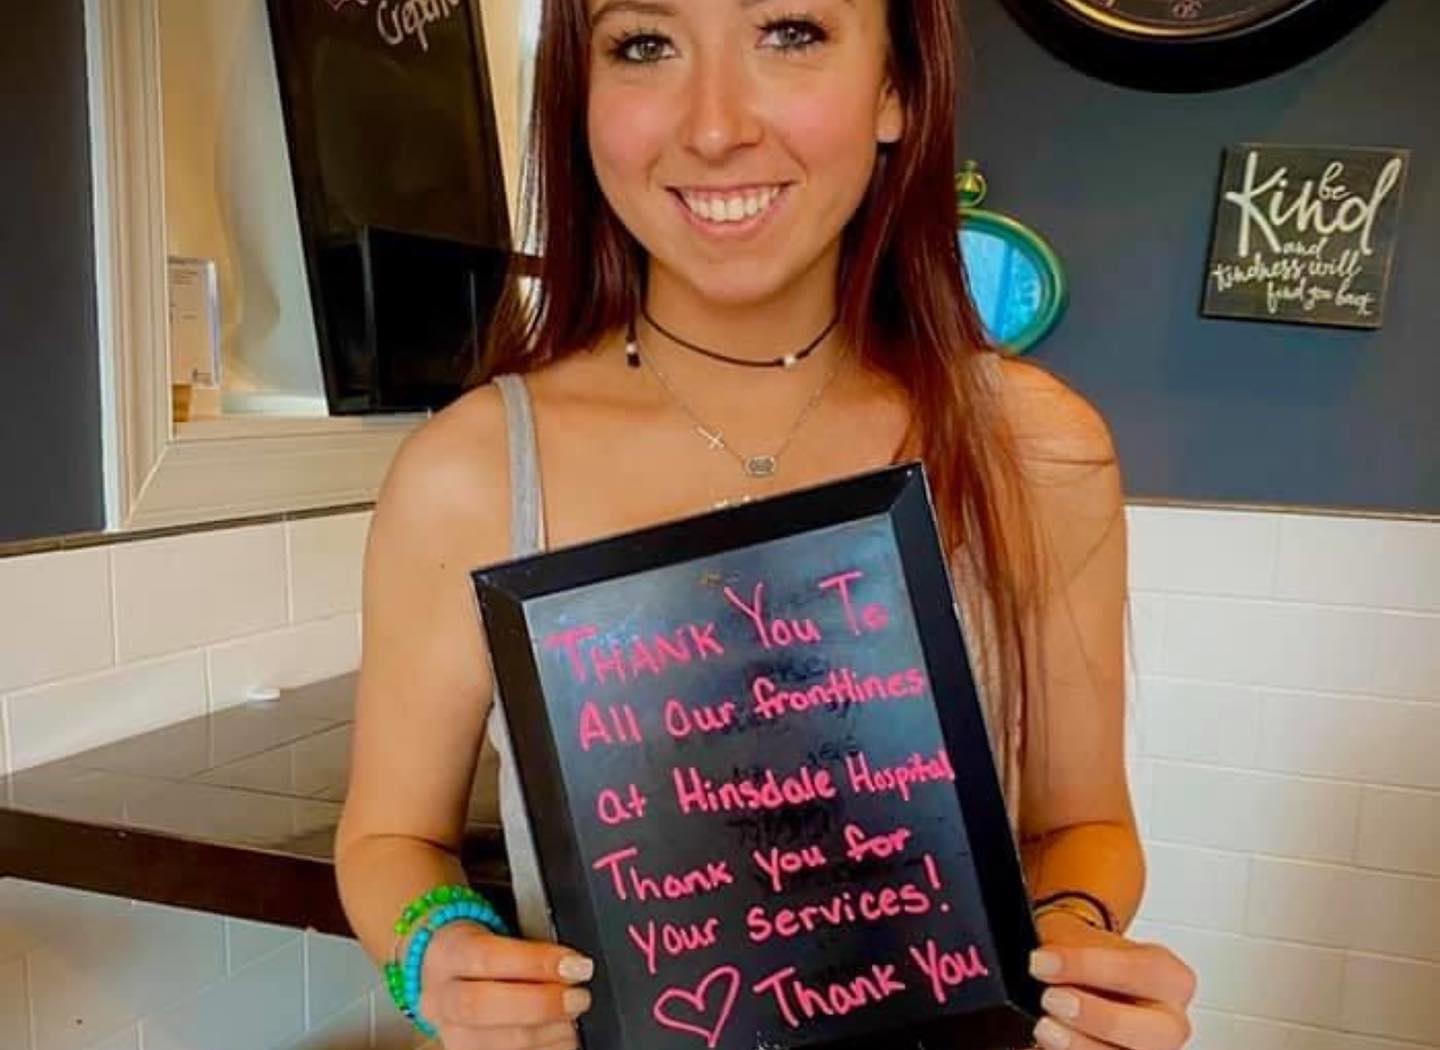 be
Kind
and
kindness will
find you back
Thank You To
All Our frontlines
at Hinsdale Hospital
Thank you for
Your services!
Thank You